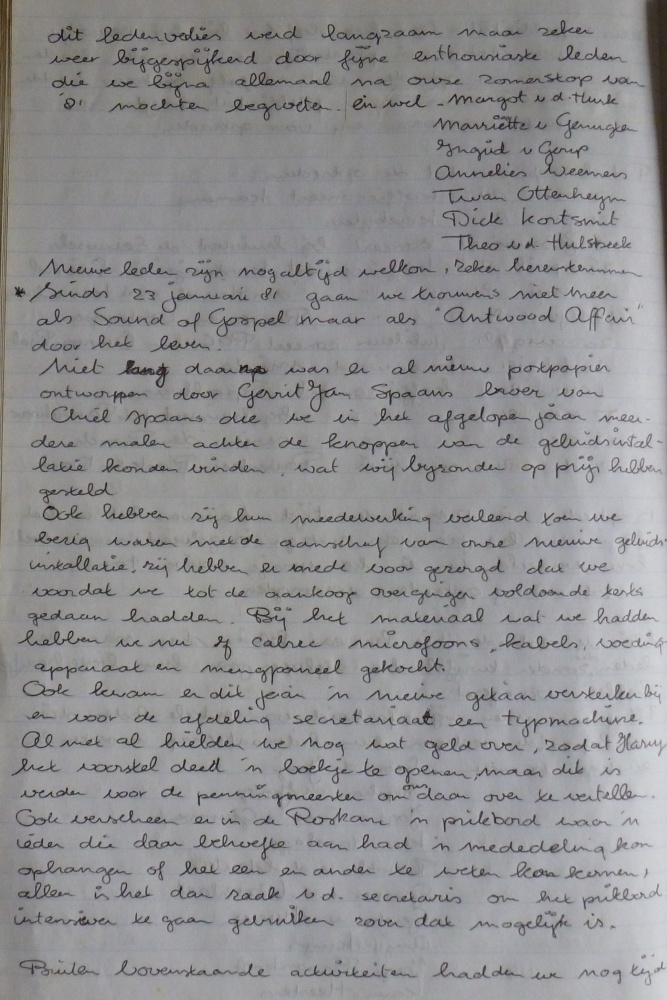 dit ledenverlies werd langzaam maar zeker
weer bijgespijkerd door fijne enthousiaste leden
die we bijna allemaal na onze zomerstop van
'81 mochten begroeten. en wel - Margot v.d. Hurk
Marriëtte v Genugten
Ingrid v Gerup
Annelies Weemers
Twan Ottenheym
Dick Kortsmit
Theo v.d. Hulsbeek
Nieuwe leden zijn nog altijd welkom, zeker herenstemmen
* Sinds 23 januarie 81 gaan we trouwens niet meer
als Sound of Gospel maar als "Antwood Affair"
door het leven.
Niet lang daarna was er al nieuw postpapier
ontworpen door Gerrit Jan Spaans broer van
Chiel Spaans die we in het afgelopen jaar meer-
dere malen achter de knoppen van de geluidsintal-
latie konden vinden. wat wij byzonder op prijs hebben
gesteld
Ook hebben zij hun meedewerking verleend toen we
bezig waren met de aanschaf van onze nieuwe geluids-
installatie, zij hebben er mede voor gezorgd dat we
voordat we tot de aankoop overgingen voldoende tests
gedaan hadden. Bij het materiaal wat we hadden
hebben we nu 8 calrec microfoons, kabels, voeding-
apparaat en mengpaneel gekocht.
Ook kwam er dit jaar 'n nieuwe gitaar versterker bij
en voor de afdeling secretariaat een typmachine.
Al met al hielden we nog wat geld over, zodat Harry
het voorstel deed 'n boekje te openen, maar dit is
verder voor de penningmeester om ons daar over te vertellen.
Ook verscheen er in de Roskam 'n prikbord waar 'n
ieder die daar behoefte aan had 'n mededeling kon
ophangen of het een en ander te weten kon komen,
alleen is het dan zaak v.d. secretaris om het prikbord
intensiever te gaan gebruiken zover dat mogelijk is.
Buiten bovenstaande activiteiten hadden we nog tijd